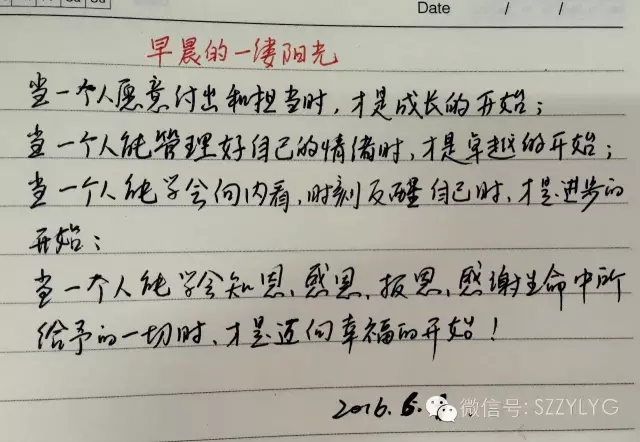 Date / /
早晨的一缕阳光
当一个人愿意付出和担当时，才是成长的开始；
当一个人能管理好自己的情绪时，才是卓越的开始；
当一个人能学会向内看，时刻反醒自己时，才是进步的
开始；
当一个人能学会知恩、感恩、报恩、感谢生命中所
给予的一切时，才是迈向幸福的开始！
2016.6.
微信号: SZZYLYG